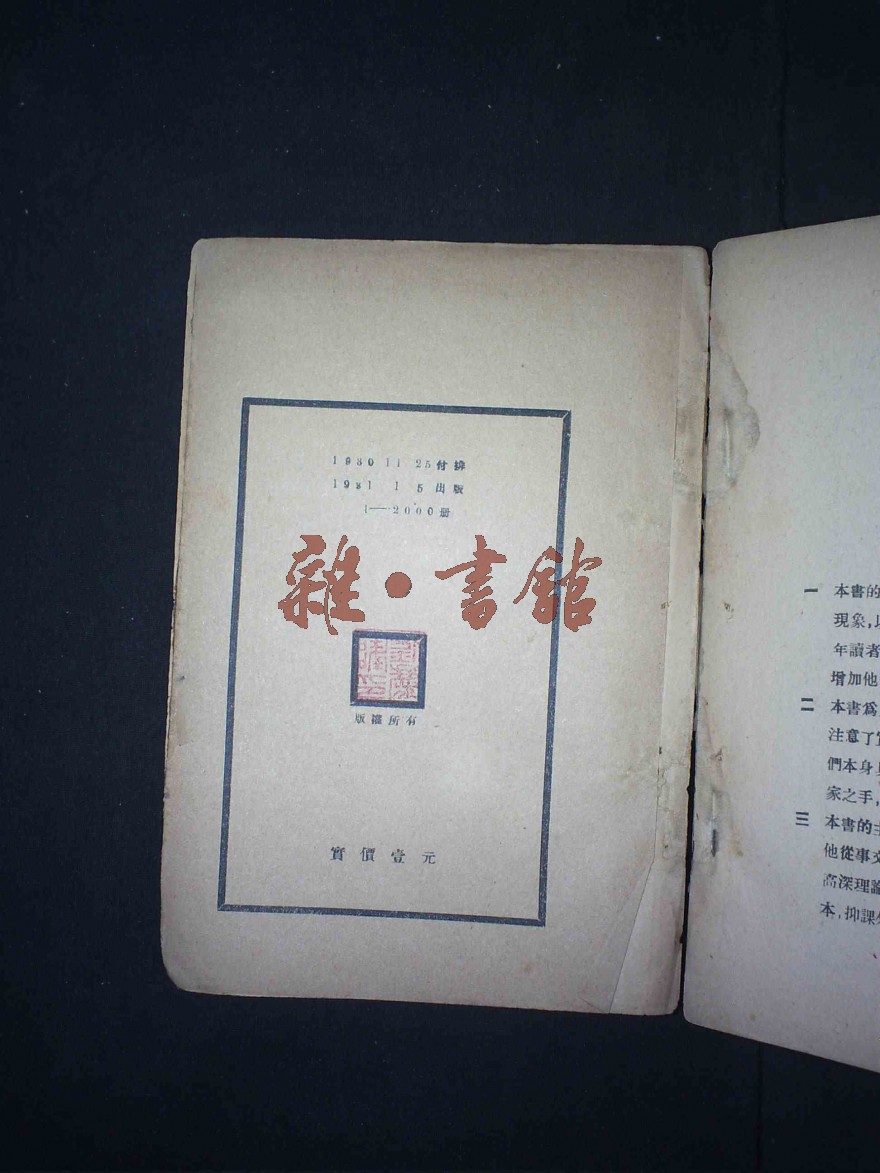 1930 11 25 付排
1931 1 5 出版
1——2000 册
雜·書館
版權所有
實價壹元
一 本書的
現象,
年讀者
增加他
二 本書爲
注意了
們本身
家之手,
三 本書的
他從事文
高深理論
本,抑課